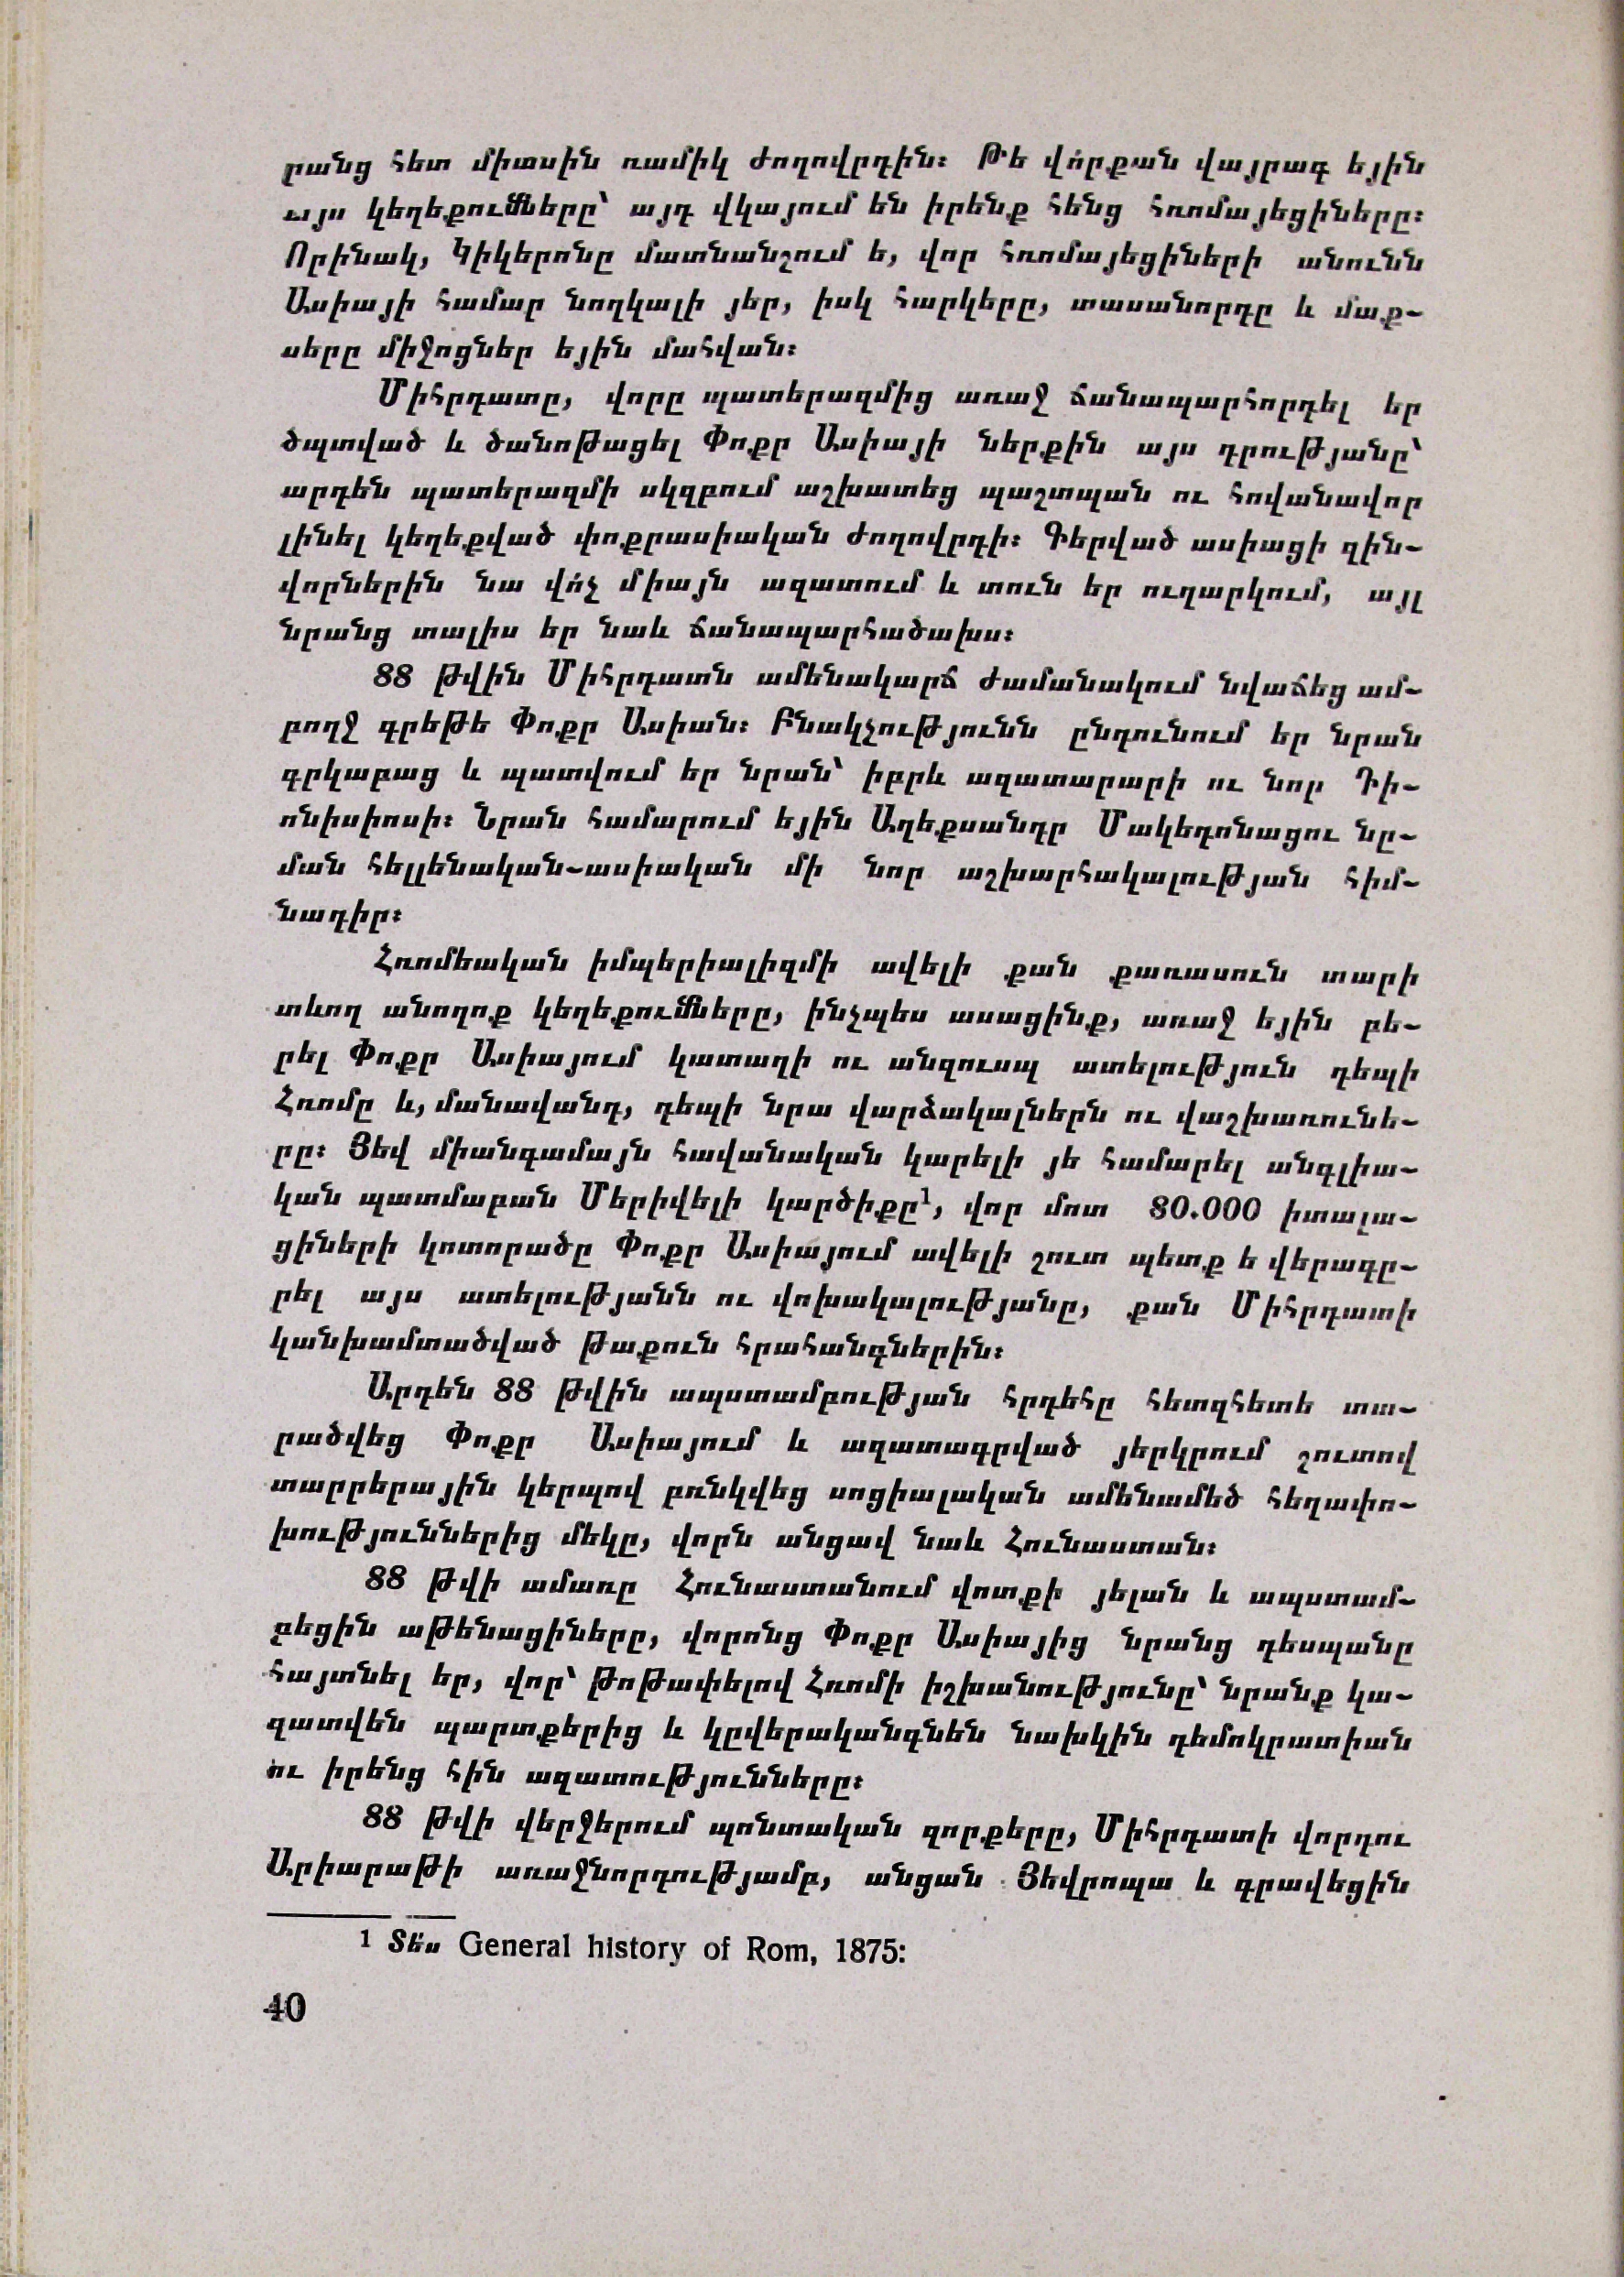 րանց հետ միասին ռամիկ ժողովրդին։ Թե վո՛րքան վայրագ եյին
այս կեղեքումները՝ այդ վկայում են իրենք հենց հռոմայեցիները։
Որինակ, Կիկերոնը մատնանշում ե, վոր հռոմայեցիների անունն
Ասիայի համար նողկալի յեր, իսկ հարկերը, տասանորդը և մաք-
սերը միջոցներ եյին մահվան։
Միհրդատը, վորը պատերազմից առաջ ճանապարհորդել եր
ծպտված և ծանոթացել Փոքր Ասիայի ներքին այս դրությանը՝
արդեն պատերազմի սկզբում աշխատեց պաշտպան ու հովանավոր
լինել կեղեքված փոքրասիական ժողովրդի։ Գերված ասիացի զին-
վորներին նա վո՛չ միայն ազատում և տուն եր ուղարկում, այլ
նրանց տալիս եր նաև ճանապարհածախս։
88 թվին Միհրդատն ամենակարճ ժամանակում նվաճեց ամ-
բողջ գրեթե Փոքր Ասիան։ Բնակչությունն ընդունում եր նրան
գրկաբաց և պատվում եր նրան՝ իբրև ազատարարի ու նոր Դի-
ոնիսիոսի։ Նրան համարում եյին Աղեքսանդր Մակեդոնացու նը-
ման հելլենական-ասիական մի նոր աշխարհակալության հիմ-
նադիր։
Հռոմեական իմպերիալիզմի ավելի քան քառասուն տարի
տևող անողոք կեղեքումները, ինչպես ասացինք, առաջ եյին բե-
րել Փոքր Ասիայում կատաղի ու անզուսպ ատելություն դեպի
Հռոմը և, մանավանդ, դեպի նրա վարձակալներն ու վաշխառունե-
րը։ Յեվ միանգամայն հավանական կարելի յե համարել անգլիա-
կան պատմաբան Մերիվելի կարծիքը¹, վոր մոտ 80.000 իտալա-
ցիների կոտորածը Փոքր Ասիայում ավելի շուտ պետք ե վերագը-
րել այս ատելությանն ու վոխակալությանը, քան Միհրդատի
կանխամտածված թաքուն հրահանգներին։
Արդեն 88 թվին ապստամբության հրդեհը հետզհետե տա-
րածվեց Փոքր Ասիայում և ազատագրված յերկրում շուտով
տարրերային կերպով բռնկվեց սոցիալական ամենամեծ հեղափո-
խություններից մեկը, վորն անցավ նաև Հունաստան։
88 թվի ամառը Հունաստանում վոտքի յելան և ապստամ-
բեցին աթենացիները, վորոնց Փոքր Ասիայից նրանց դեսպանը
հայտնել եր, վոր՝ թոթափելով Հռոմի իշխանությունը՝ նրանք կա-
զատվեն պարտքերից և կըվերականգնեն նախկին դեմոկրատիան
ու իրենց հին ազատությունները։
88 թվի վերջերում պոնտական զորքերը, Միհրդատի վորդու
Արիարաթի առաջնորդությամբ, անցան Յեվրոպա և գրավեցին
1 Տե՛ս General history of Rom, 1875:
40